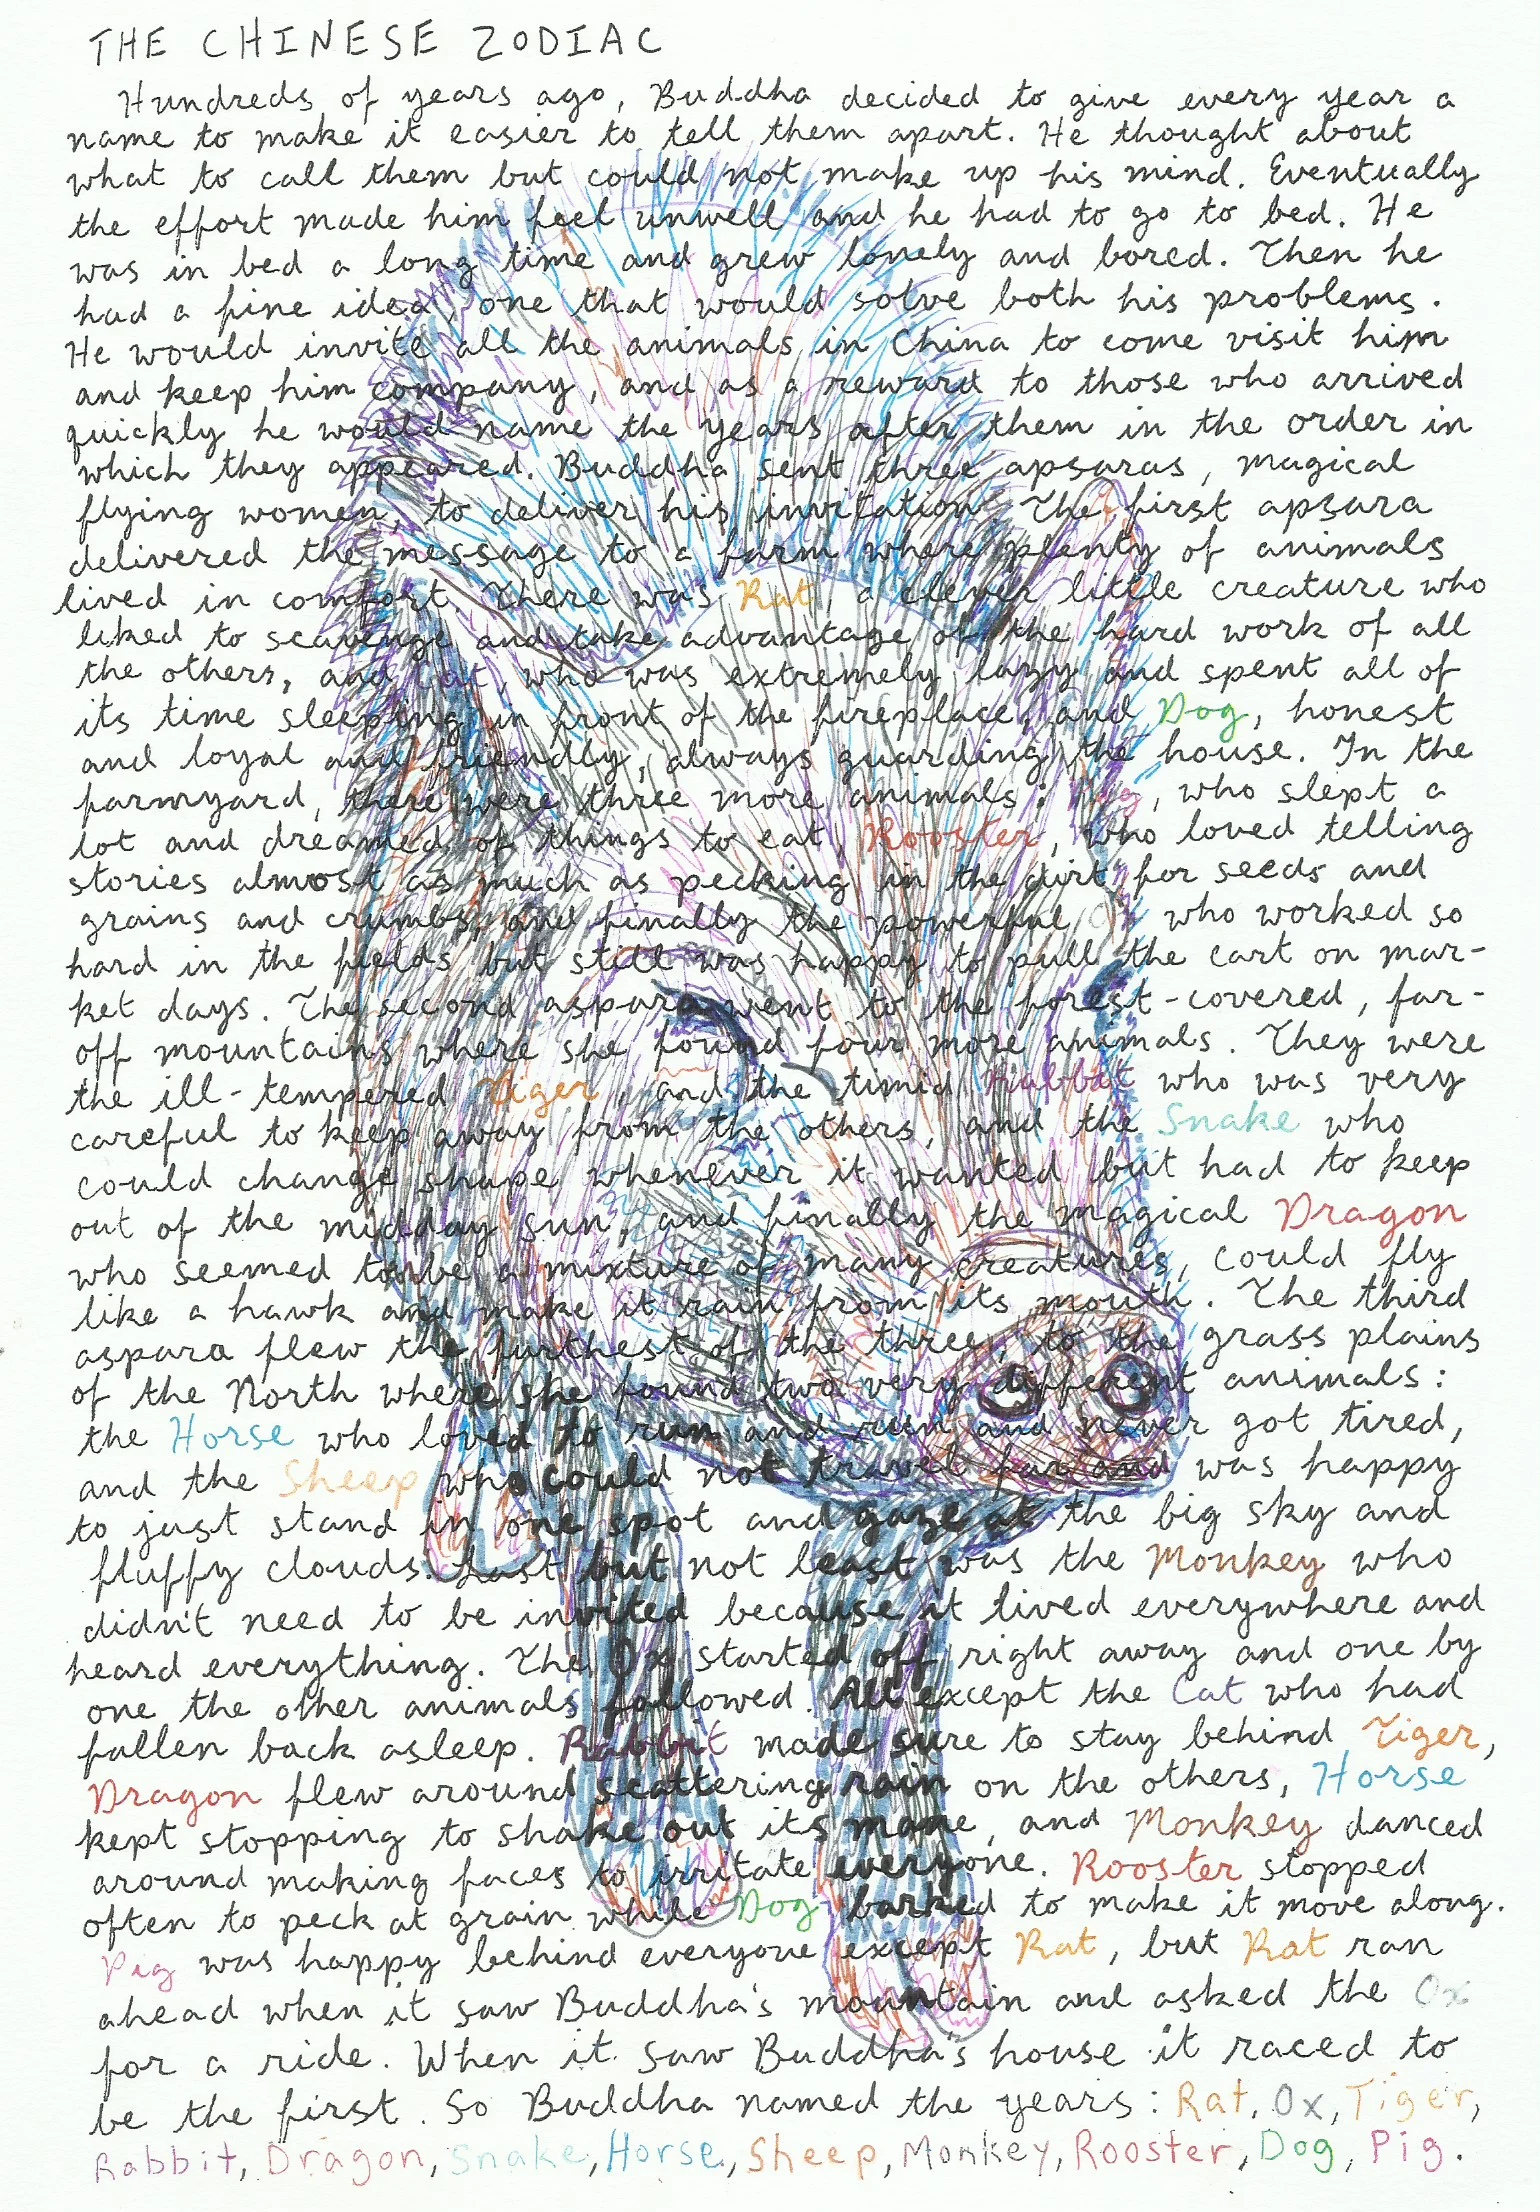 THE CHINESE ZODIAC
Hundreds of years ago, Buddha decided to give every year a
name to make it easier to tell them apart. He thought about
what to call them but could not make up his mind. Eventually
the effort made him feel unwell and he had to go to bed. He
was in bed a long time and grew lonely and bored. Then he
had a fine idea, one that would solve both his problems.
He would invite all the animals in China to come visit him
and keep him company, and as a reward to those who arrived
quickly he would name the years after them in the order in
which they appeared. Buddha sent three apsaras, magical
flying women, to deliver his invitation. The first apsara
delivered the message to a farm where plenty of animals
lived in comfort. There was Rat, a clever little creature who
liked to scavenge and take advantage of the hard work of all
the others, and Cat, who was extremely lazy and spent all of
its time sleeping in front of the fireplace, and Dog, honest
and loyal and friendly, always guarding the house. In the
farmyard, there were three more animals: Pig, who slept a
lot and dreamed of things to eat, Rooster, who loved telling
stories almost as much as pecking in the dirt for seeds and
grains and crumbs, and finally the powerful Ox who worked so
hard in the fields but still was happy to pull the cart on mar-
ket days. The second aspara went to the forest-covered, far-
off mountains where she found four more animals. They were
the ill-tempered Tiger, and the timid Rabbit who was very
careful to keep away from the others, and the Snake who
could change shape whenever it wanted but had to keep
out of the midday sun, and finally the magical Dragon
who seemed to be a mixture of many creatures, could fly
like a hawk and make it rain from its mouth. The third
aspara flew the furthest of the three, to the grass plains
of the North where she found two very different animals:
the Horse who loved to run and run and never got tired,
and the Sheep who could not travel far and was happy
to just stand in one spot and gaze at the big sky and
fluffy clouds. Last but not least was the Monkey who
didn't need to be invited because it lived everywhere and
heard everything. The Ox started off right away and one by
one the other animals followed. All except the Cat who had
fallen back asleep. Rabbit made sure to stay behind Tiger,
Dragon flew around scattering rain on the others, Horse
kept stopping to shake out its mane, and Monkey danced
around making faces to irritate everyone. Rooster stopped
often to peck at grain while Dog barked to make it move along.
Pig was happy behind everyone except Rat, but Rat ran
ahead when it saw Buddha's mountain and asked the Ox
for a ride. When it saw Buddha's house it raced to
be the first. So Buddha named the years: Rat, Ox, Tiger,
Rabbit, Dragon, Snake, Horse, Sheep, Monkey, Rooster, Dog, Pig.